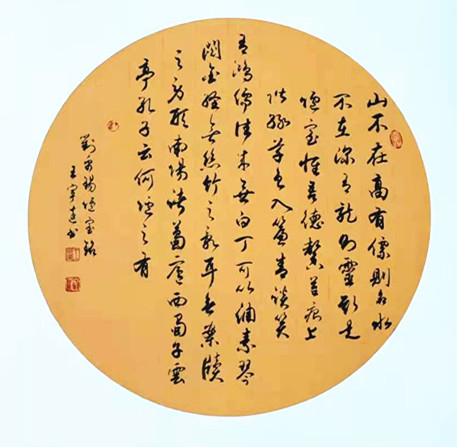 山不在高有僊則名水
不在深有龍則靈斯是
陋室惟吾德馨苔痕上
階綠草色入簾青談笑
有鴻儒往來無白丁可以調素琴
閱金經無絲竹之亂耳無案牘
之勞形南陽諸葛廬西蜀子雲
亭孔子云何陋之有
劉禹錫陋室銘
王宇书